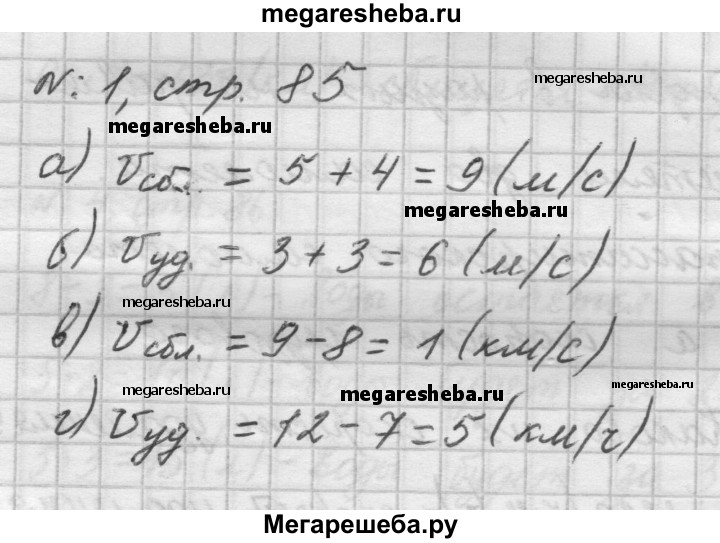 megaresheba.ru
№ 1, стр. 85
megaresheba.ru
megaresheba.ru
а) Vсбл. = 5 + 4 = 9 (м/с)
megaresheba.ru
б) Vуд. = 3 + 3 = 6 (м/с)
megaresheba.ru
в) Vсбл. = 9 - 8 = 1 (км/с)
megaresheba.ru
megaresheba.ru
megaresheba.ru
г) Vуд. = 12 - 7 = 5 (км/ч)
Мегарешеба.ру